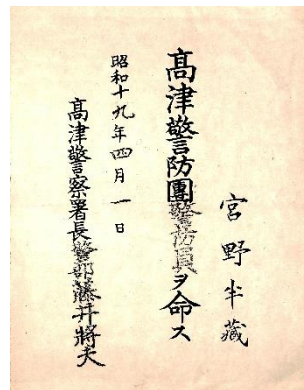 宮野半藏
髙津警防團警防員ヲ命ス
昭和十九年四月一日
髙津警察署長警部藤井將夫